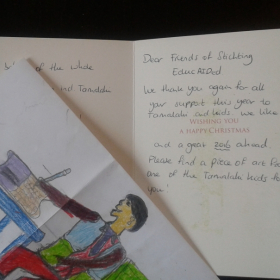 of the whole
and Tamalalu
Dear Friends of Stichting
EducAIDed
We thank you again for all
your support this year to
Tamalalu and kids we like
WISHING YOU
A HAPPY CHRISTMAS
and a great 2016 ahead
Please find a piece of art from
one of the Tamalalu kids for
you!